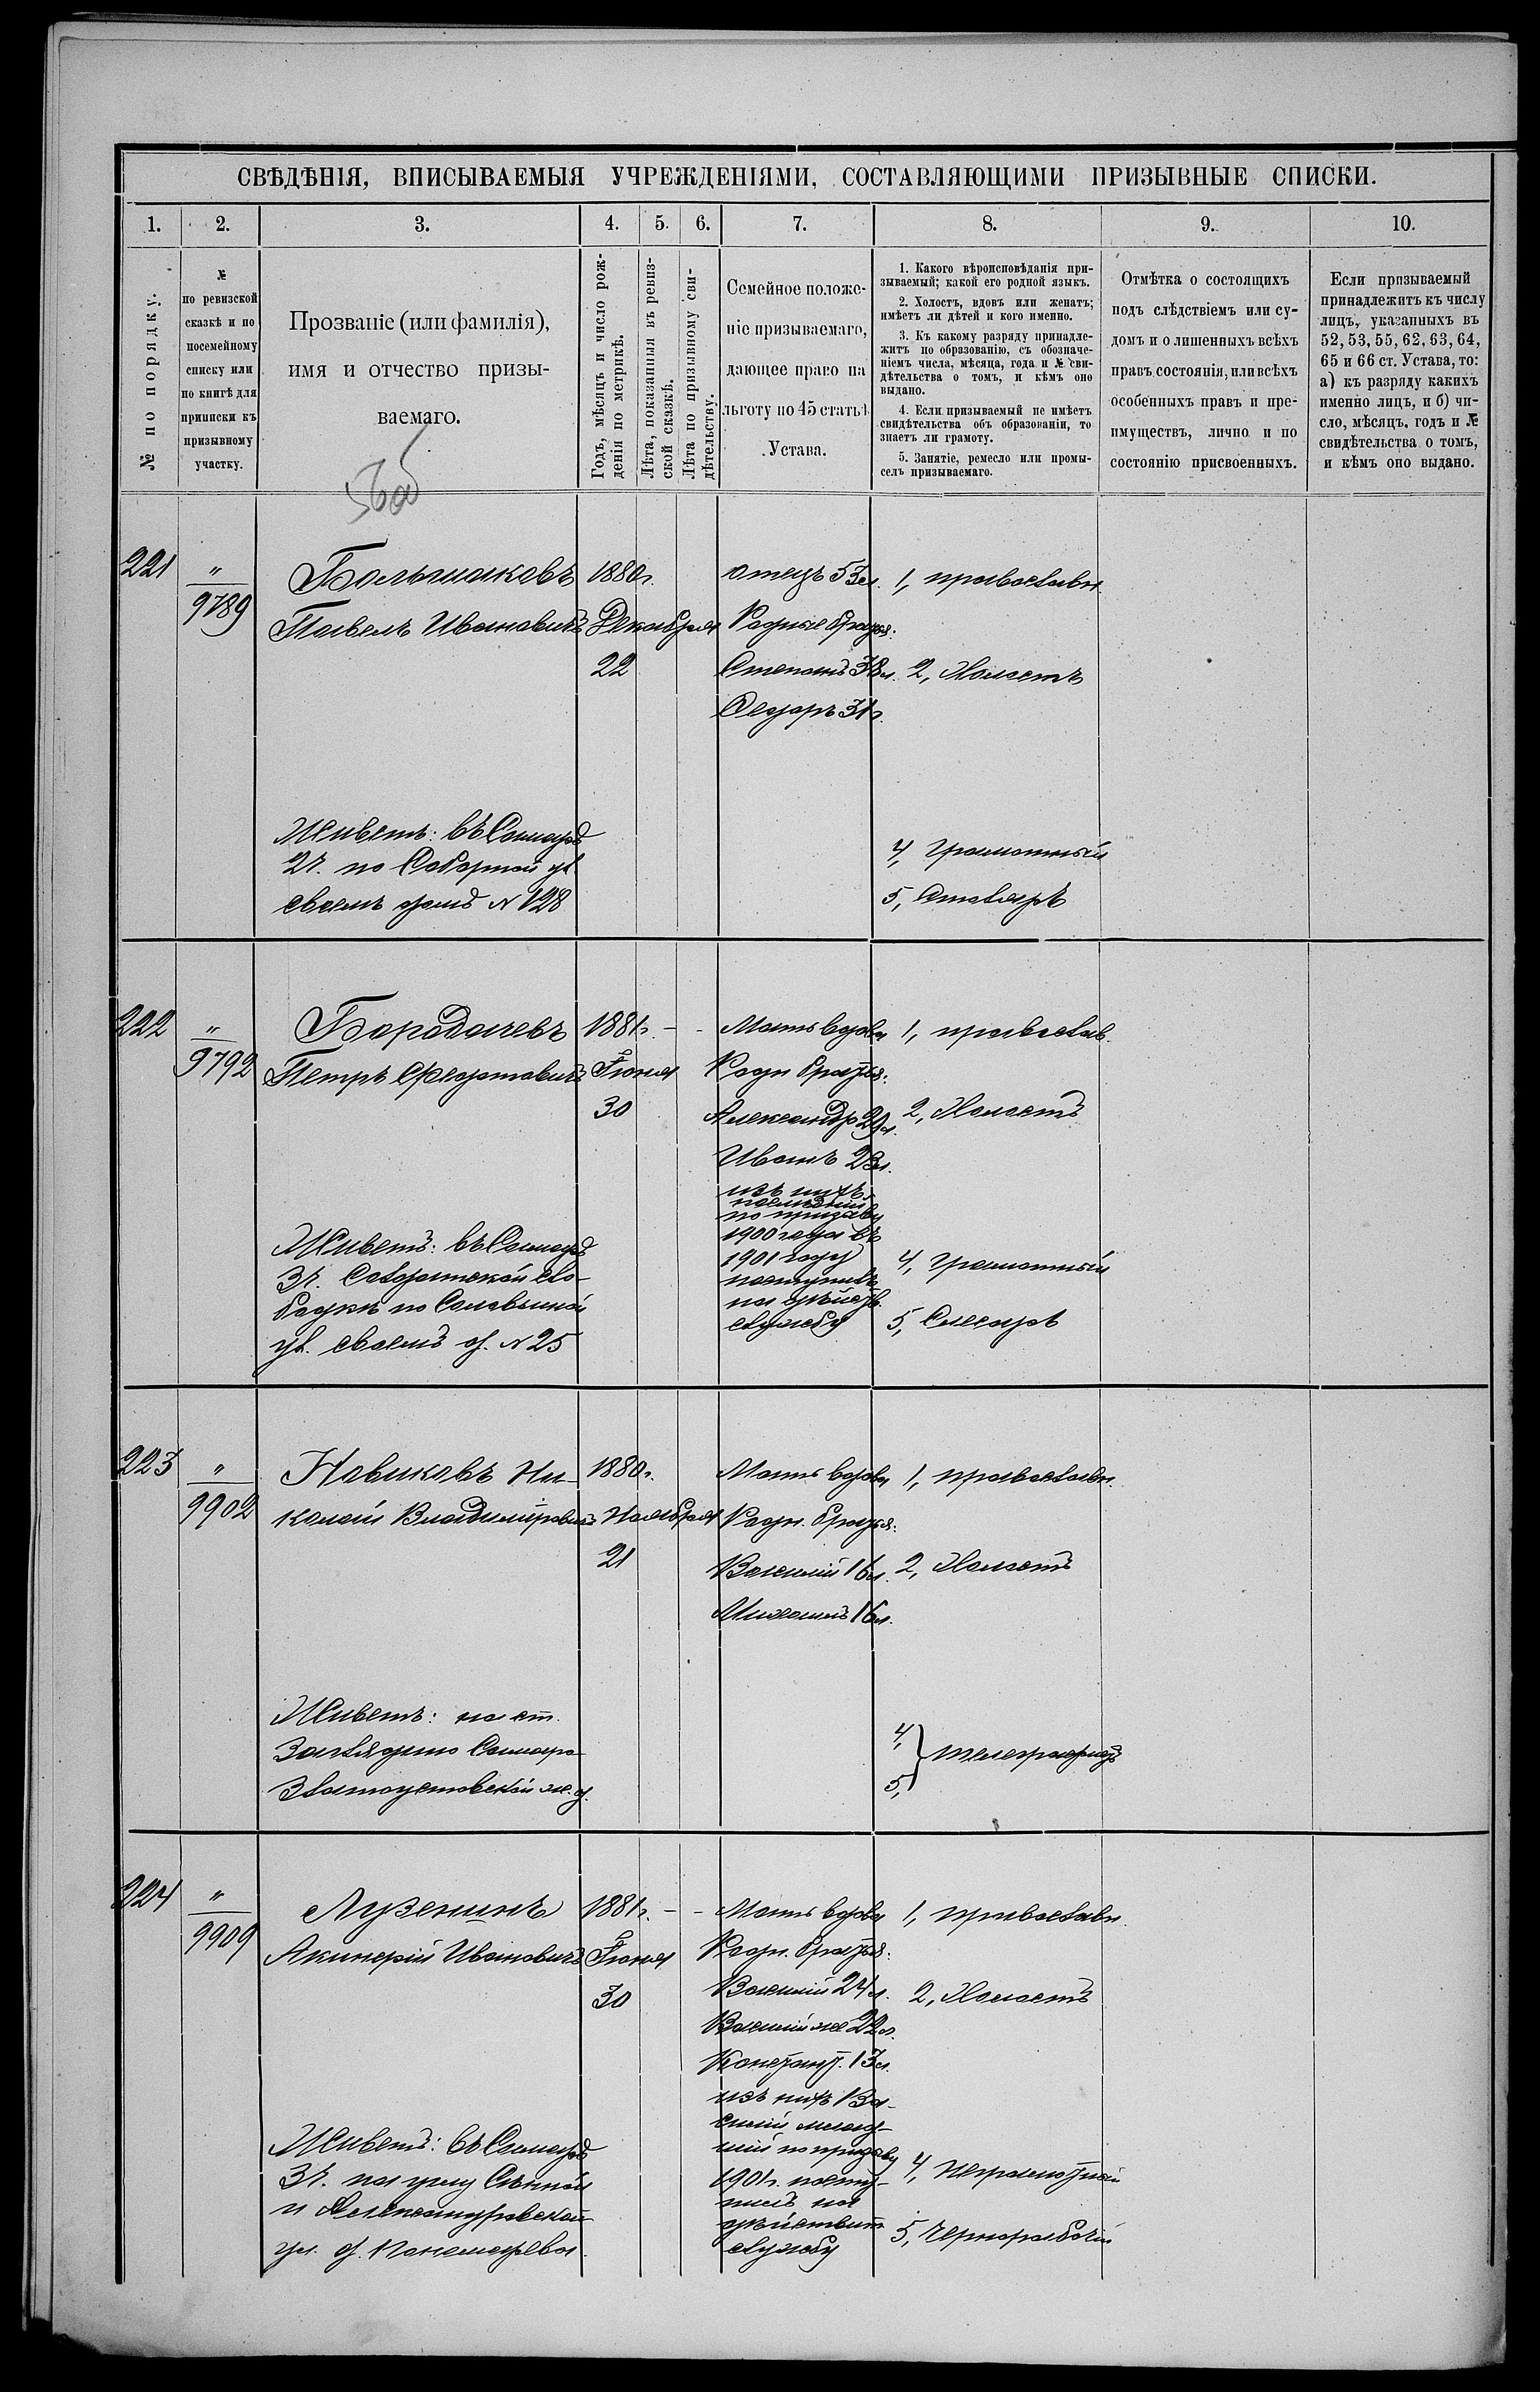 СВѢДѢНІЯ, ВПИСЫВАЕМЫЯ УЧРЕЖДЕНІЯМИ, СОСТАВЛЯЮЩИМИ ПРИЗЫВНЫЕ СПИСКИ.
1. 2. 3. 4. 5. 6. 7. 8. 9. 10.
№ по порядку.
№
по ревизской
сказкѣ и по
посемейному
списку или
по книгѣ для
приписки къ
призывному
участку.
Прозваніе (или фамилія),
имя и отчество призы-
ваемаго.
Годъ, мѣсяцъ и число рож-
денія по метрикѣ.
Лѣта, показанныя въ ревиз-
ской сказкѣ.
Лѣта по призывному сви-
дѣтельству.
Семейное положе-
ніе призываемаго,
дающее право на
льготу по 45 статьѣ
Устава.
1. Какого вѣроисповѣданія при-
зываемый; какой его родной языкъ.
2. Холостъ, вдовъ или женатъ;
имѣетъ ли дѣтей и кого именно.
3. Къ какому разряду принадле-
житъ по образованію, съ обозначе-
ніемъ числа, мѣсяца, года и № сви-
дѣтельства о томъ, и кѣмъ оно
выдано.
4. Если призываемый не имѣетъ
свидѣтельства объ образованіи, то
знаетъ ли грамоту.
5. Занятіе, ремесло или промы-
селъ призываемаго.
Отмѣтка о состоящихъ
подъ слѣдствіемъ или су-
домъ и о лишенныхъ всѣхъ
правъ состоянія, или всѣхъ
особенныхъ правъ и пре-
имуществъ, лично и по
состоянію присвоенныхъ.
Если призываемый
принадлежитъ къ числу
лицъ, указанныхъ въ
52, 53, 55, 62, 63, 64,
65 и 66 ст. Устава, то:
а) къ разряду какихъ
именно лицъ, и б) чи-
сло, мѣсяцъ, годъ и №
свидѣтельства о томъ,
и кѣмъ оно выдано.
221
"
9789
Большаковъ
Павелъ Ивановичъ
1880г.
Декабря
22
отецъ 53л.
Родные братья:
Степанъ 38л.
Федоръ 31г.
1, православн.
2, Холостъ
Живетъ: въ Самарѣ
2ч. по Соборной ул.
своемъ домѣ N 128
4, Грамотный
5, Столяръ
222
"
9792
Бородачевъ
Петръ Федотовичъ
1881г.
Іюня
30
Мать вдова
Родн братья:
Александр 29л.
Иванъ 23л.
изъ нихъ
послѣдній
по призыву
1900 года въ
1901 году
поступивъ
на дѣйств.
службу
1, православ.
2, Холостъ
Живетъ: въ Самарѣ
3ч. Солдатской сло-
бодкѣ по Соловьиной
ул. своемъ д. N 25
4, Грамотный
5, Слесарь
223
"
9902
Новиковъ Ни-
колай Владиміровичъ
1880г.
Ноября
21
Мать вдова
Родн. братья:
Василій 16л.
Михаилъ 16л.
1, православн.
2, Холостъ
Живетъ: на ст.
Заглядино Самаро-
Златоустовской ж. д.
4,
5,
телеграфистъ
224
"
9909
Лузенинъ
Акиндин Ивановичъ
1881г.
Іюня
30
Мать вдова
Родн. братья:
Василій 24л.
Василій же 22л.
Констант. 13л.
изъ нихъ Ва-
силій млад-
шій по призыву
1901г. посту-
пилъ на
дѣйствит
службу
1, православн.
2, Холостъ
Живетъ: въ Самарѣ
3ч. на углу Сѣнной
и Александровской
ул. д. Пономарева.
4, Неграмотный
5, Чернорабочій